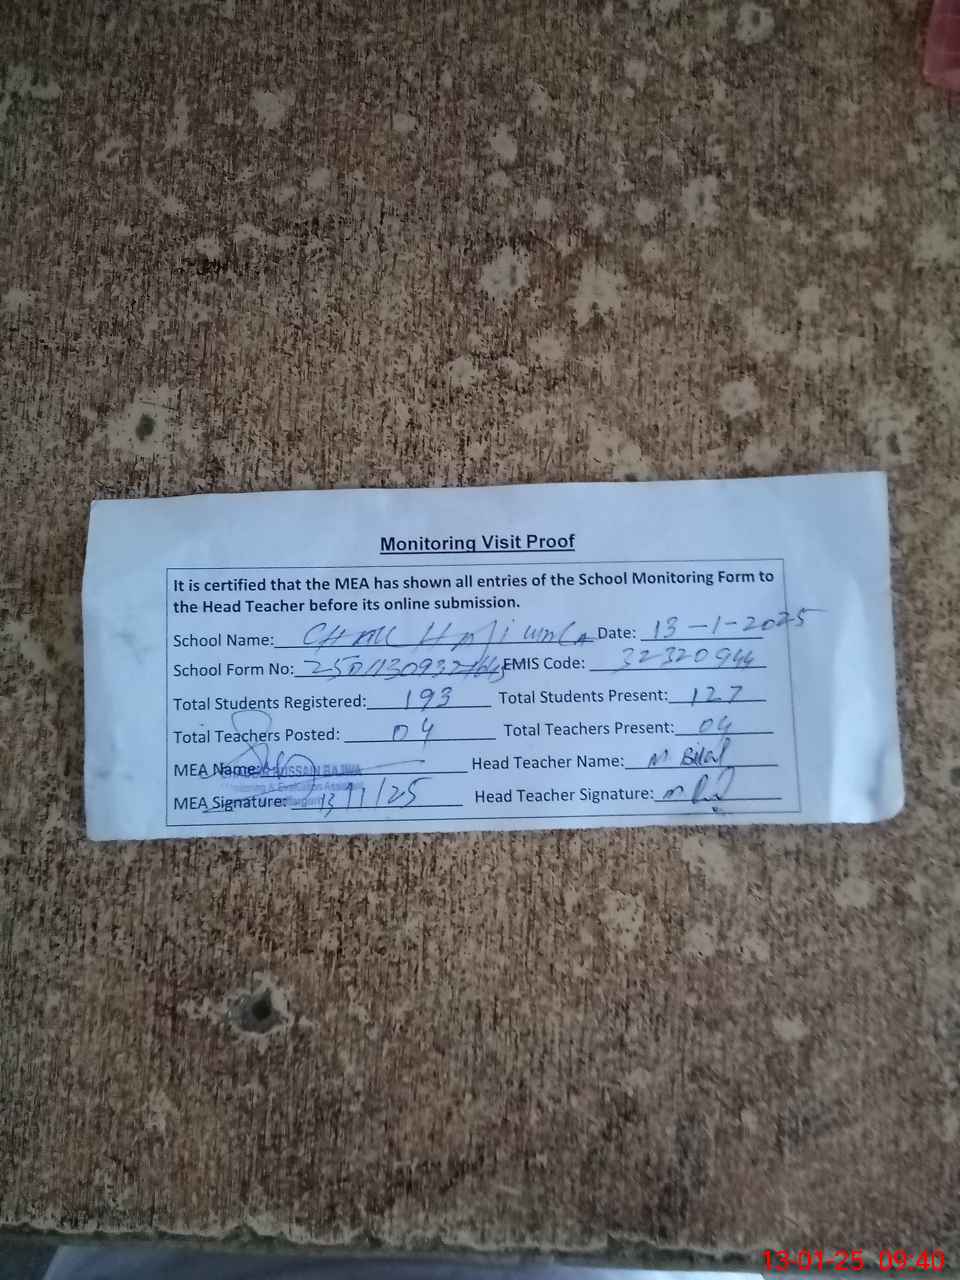 Monitoring Visit Proof
It is certified that the MEA has shown all entries of the School Monitoring Form to
the Head Teacher before its online submission.
School Name: Date: 13-1-2025
School Form No: EMIS Code: 32320944
Total Students Registered: 193 Total Students Present: 127
Total Teachers Posted: 04 Total Teachers Present: 04
MEA Name: HUSSAIN BAJWA Head Teacher Name: M. Bilal
Monitoring & Evaluation Assistant
MEA Signature: 13/1/25 Head Teacher Signature:
13-01-25 09:40